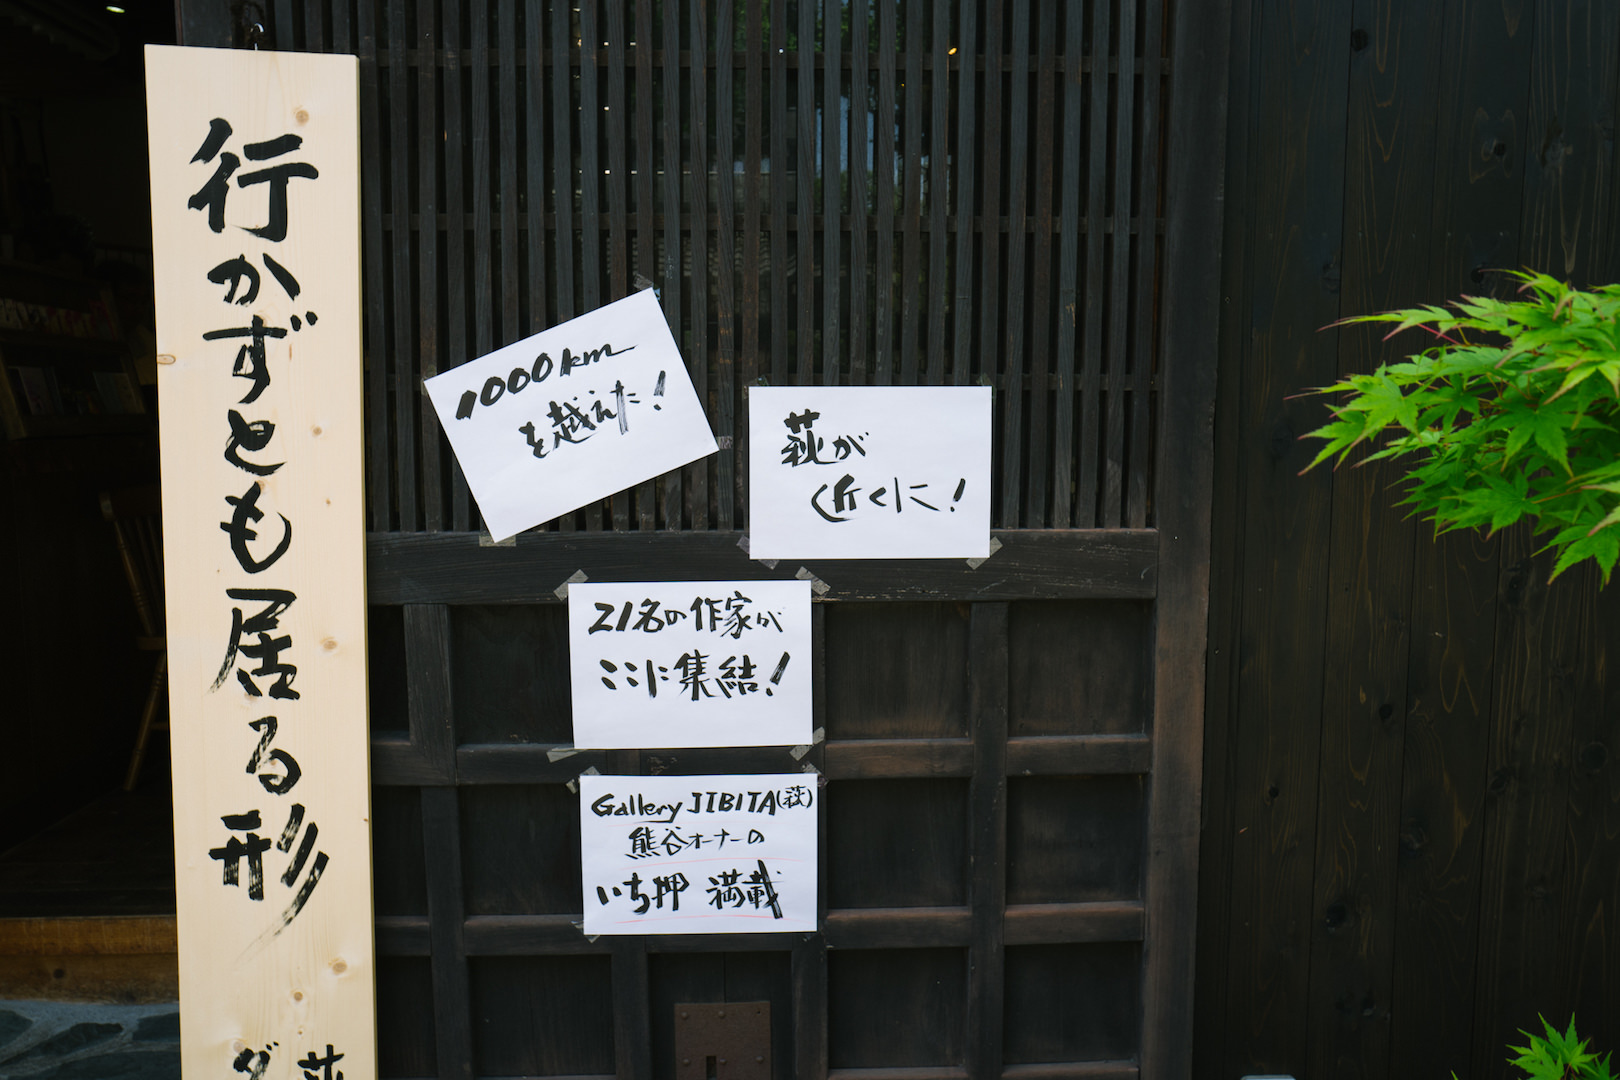 行かずとも居る形
1000km
を越えた！
萩が
近くに！
21名の作家が
ここに集結！
Gallery JIBITA(萩)
熊谷オーナーの
いち押 満載